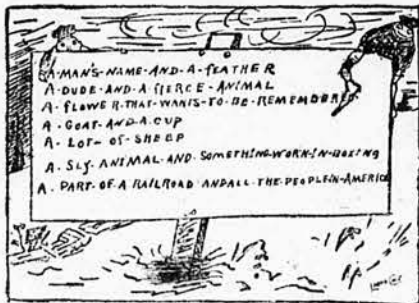 A·MAN'S·NAME·AND·A·FEATHER
A·DUDE·AND·A·FIERCE·ANIMAL
A·FLOWER·THAT·WANTS·TO·BE·REMEMBERED.
A·GOAT·AND·A·CUP
A·LOT·OF·SHEEP
A·SLY·ANIMAL·AND·SOMETHING·WORN·IN·BOXING
A·PART·OF·A·RAILROAD AND ALL·THE·PEOPLE·IN·AMERICA